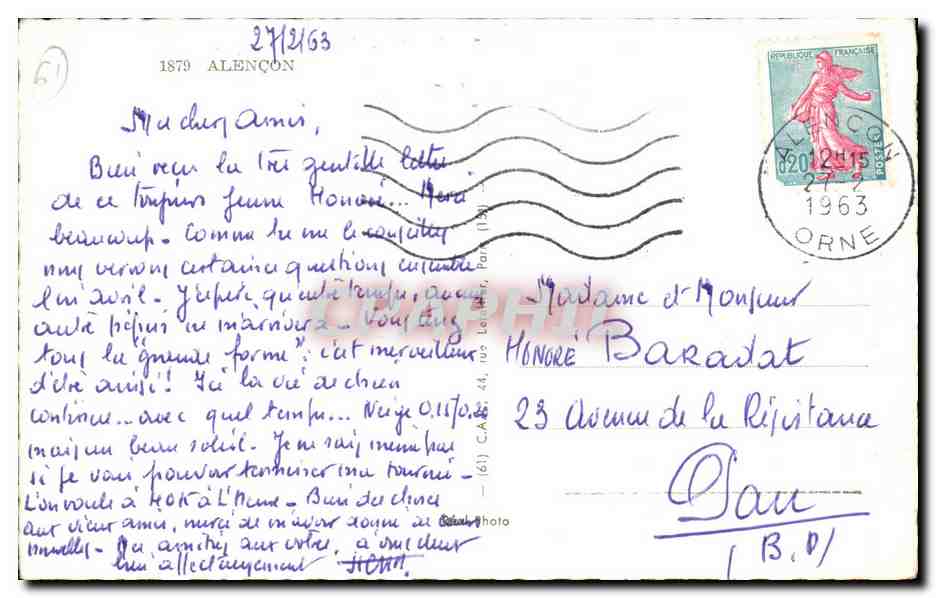 27/2/63
61
1879 ALENÇON
REPUBLIQUE FRANÇAISE
0,20
POSTES
ALENCON
12H15
27-2
1963
ORNE
Mes chers amis,
Bien reçu la très gentille lettre
de ce toujours jeune Honoré... Merci
beaucoup. Comme tu me le conseilles
nous verrons certaines questions ensemble
en avril. J'espère qu'entre temps, aucun
autre pépin ne m'arrivera. Vous êtes
tous la "grande forme": c'est merveilleux
d'être ainsi! Ici la vie de chien
continue... avec quel temps... Neige 0.15/0.20
mais un beau soleil. Je ne sais même pas
si je vais pouvoir terminer ma tournée -
L'on roule à 40K à l'Heure. Bien des choses
aux vieux amis, merci de m'avoir donné de
nouvelles. Mes amitiés aux vôtres, à vous deux
bien affectueusement
Madame et Monsieur
HONORÉ BARADAT
23 Avenue de la Résistance
Pau
(B.P)
(61) C.A.P. 44, rue Letellier, Paris (15e)
Photo
CPAPHIL